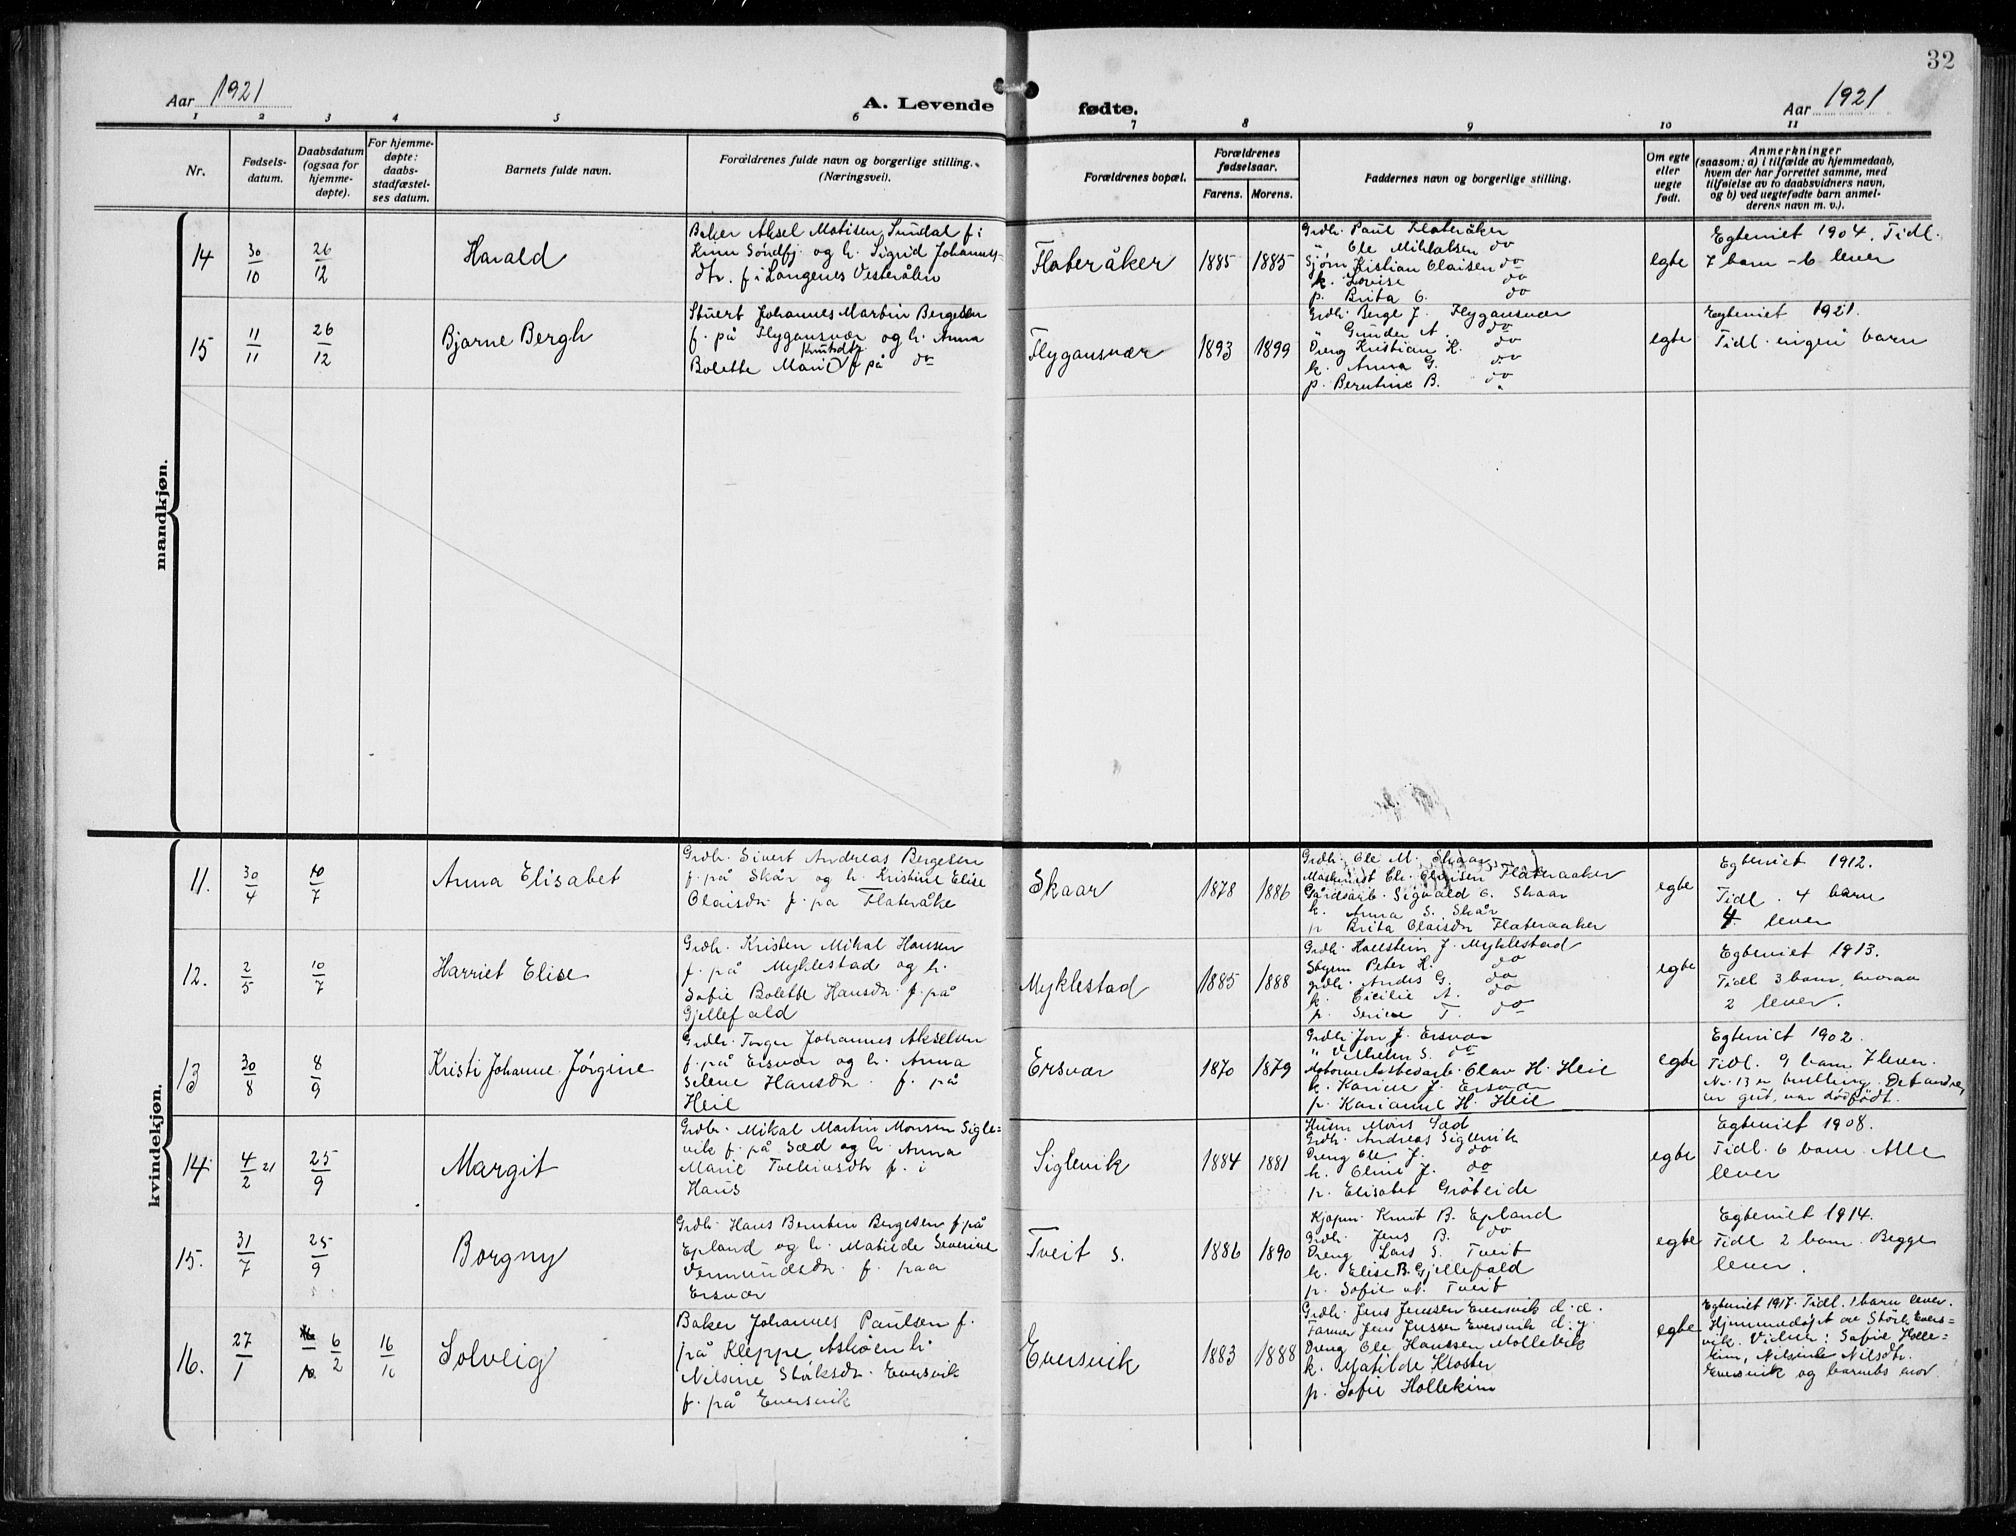 32
Aar 1921
A. Levende fødte.
Aar 1921
1 2 3 4 5 6 7 8 9 10 11
Nr.
Fødsels-
datum.
Daabsdatum
(ogsaa for
hjemme-
døpte).
For hjemme-
døpte:
daabs-
stadfæstel-
ses datum.
Barnets fulde navn.
Forældrenes fulde navn og borgerlige stilling.
(Næringsvei).
Forældrenes bopæl.
Forældrenes
fødselsaar.
Farens. Morens.
Faddernes navn og borgerlige stilling.
Om egte
eller
uegte
født.
Anmerkninger
(saasom: a) i tilfælde av hjemmedaab,
hvem der har forrettet samme, med
tilføielse av to daabsvidners navn,
og b) ved uegtefødte barn anmel-
derens navn m. v.).
mandkjøn.
14
30/10
26/12
Harald
Baker Aksel Matisen Sundal f. i
Kinn Söndfj. og h. Sigrid Johannes-
dtr. f. i Langenes Vesterålen
Flateråker
1885 1885
Grdbr. Paul Flateråker
" Ole Mikkalsen do
Sjøm Kristian Olaisen do
k. Lovise do
p. Brita O. do
egte
Egteviet 1904. Tidl.
7 barn - 6 lever
15
11/11
26/12
Bjarne Bergh
Stuert Johannes Martin Bergesen
f. på Flygansvær og h. Anna
Knutsdtr
Bolette Marie f på do
Flygansvær
1893 1899
Grdbr. Berge J. Flygansvær
" Gunder A. do
Dreng Kristian K. do
k. Anna G. do
p. Berntine B. do
egte
Egteviet 1921.
Tidl. ingen barn
kvindekjøn.
11.
30/4
10/7
Anna Elisabet
Grdbr. Sivert Andreas Bergesen
f. på Skår og h. Kristine Elise
Olaisdtr f. på Flateråke
Skaar
1878 1886
Grdbr. Ole M. Skaar
Maskinist Chr. Olaisen Flateraaker
Gårdsarb. Sigvald O. Skaar
k. Anna S. Skår
p. Brita Olaisdtr Flateraaker
egte
Egteviet 1912.
Tidl. 4 barn
4 lever
12.
2/5
10/7
Harriet Elise
Grdbr. Kristen Mikal Hansen
f. på Myklestad og h.
Sofie Bolette Hansdtr. f. på
Gjellefald
Myklestad
1885 1888
Grdbr. Hallstein J. Myklestad
Styrm Peter H. do
grdbr. Andres G. do
k. Cicilie A. do
p. Serine T. do
egte
Egteviet 1913.
Tidl 3 barn, hvorav
2 lever.
13
30/8
8/9
Kristi Johanne Jørgine
Grdbr. Torger Johannes Akselsen
f. på Ersvær og h. Anna
Selene Hansdtr. f. på
Heil
Ersvær
1870 1879
Grdbr Jon J. Ersvær
" Vilhelm S. do
Olav H. Heil
k. Karine J. Ersvær
p. Karianne H. Heil
egte
Egteviet 1902.
Tidl. 9 barn 7 lever.
Nr. 13 er tvilling. Det andre,
en gut, var dödfödt.
14
4/2 21
25/9
Margit
Grdbr. Mikal Martin Monsen Sigle-
vik f. på Sæd og h. Anna
Marie f. i
Haus
Siglevik
1884 1881
Husm Mons Sæd
Grdbr. Andreas Siglevik
Dreng Ole J. do
k. Oline J. do
p. Elisabet Gröteide
egte
Egteviet 1908.
Tidl. 6 barn. Alle
lever
15.
31/7
25/9
Borgny
Grdbr. Hans Berntin Bergesen f. på
Epland og h. Matilde Severine
Vermundsdtr. f. paa
Ersvær
Tveit s.
1886 1890
Kjøpm. Knut B. Epland
Grdbr. Jens B. do
Dreng Lars S. Tveit
k. Elise B. Gjellefald
p. Sofie M. Tveit
egte
Egteviet 1914.
Tidl 2 barn. Begge
lever.
16.
27/1
6/2
16/10
Solveig
Baker Johannes Paulsen f.
på Kleppe Askøen h.
Nilsine Störksdtr. Eversvik
f. på Eversvik
Eversvik
1883 1888
Grdbr. Jens Jenssen Eversvik d. e.
Farmer Jens Jenssen Eversvik d. y.
Dreng Ole Hanssen Mollevik
k. Matilde Kloster
p. Sofie Hollekim
egte
Egteviet 1917. Tidl. 1 barn lever.
Hjemmedöpt av Störk Evers-
vik. Vidner: Sofie Holle-
kim, Nilsine Nilsdtr.
Eversvik og barnets mor.